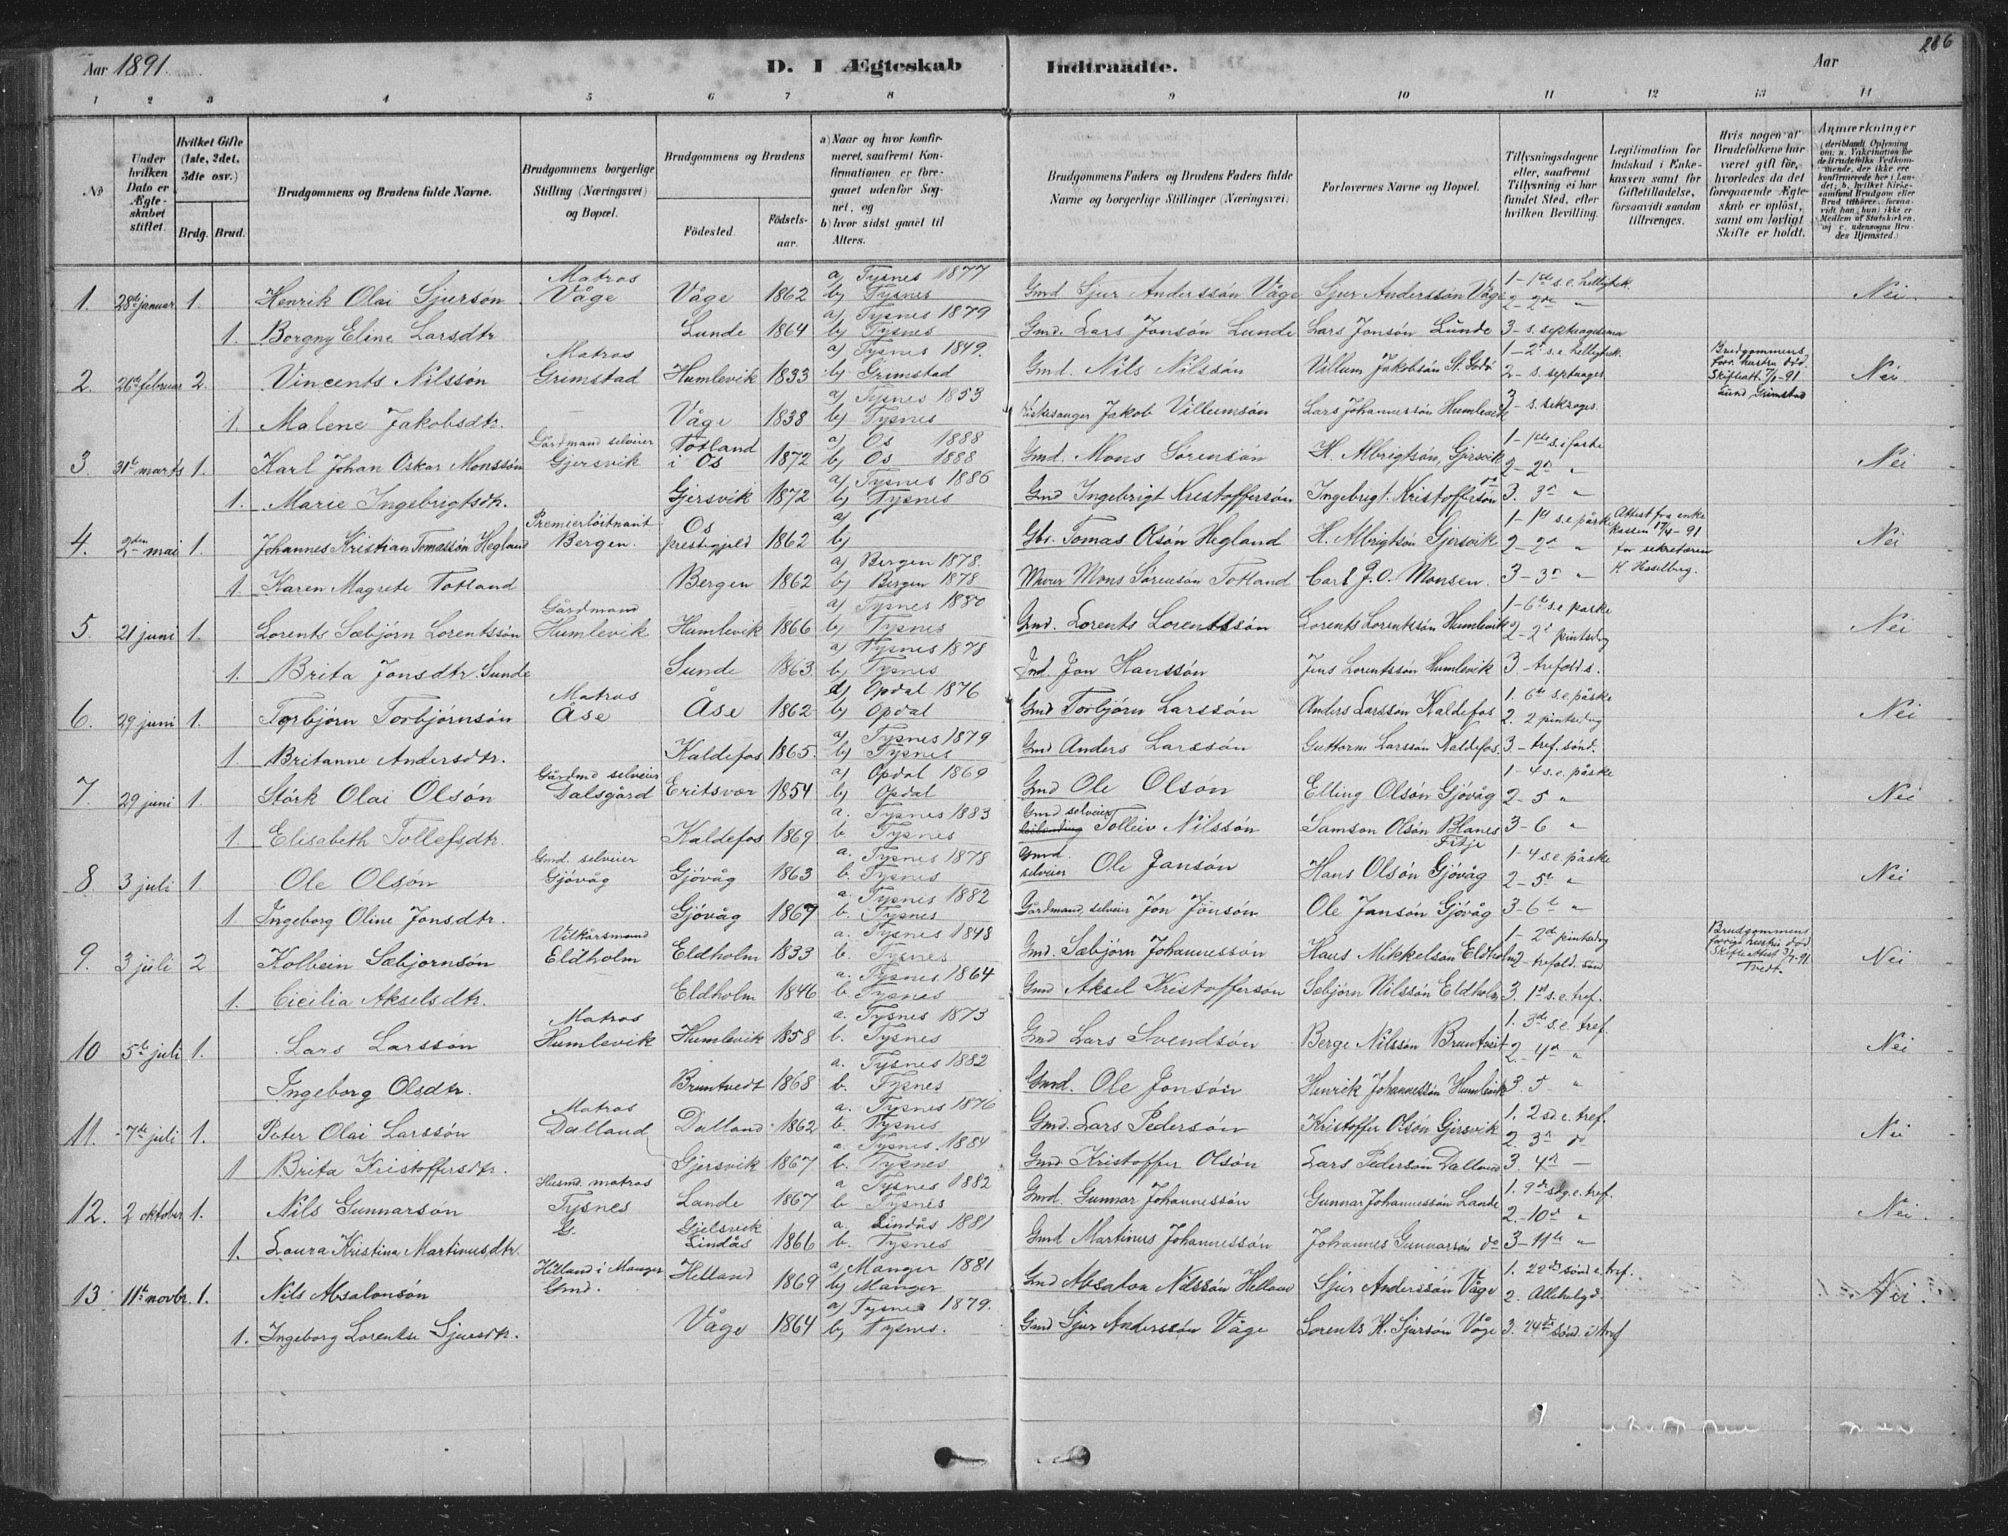 Aar 1891.
D. I Ægteskab
Indtraadte.
Aar
286
1 2 3 4 5 6 7 8 9 10 11 12 13 14
No
Under hvilken Dato er Ægteskabet stiftet.
Hvilket Gifte (1ste, 2det, 3die osv.)
Brdg. Brud.
Brudgommens og Brudens fulde Navne.
Brudgommens borgerlige Stilling (Næringsvei) og Bopæl.
Brudgommens og Brudens
Fødested.
Fødselsaar.
a) Naar og hvor konfirmeret, saafremt Konfirmationen er foregaaet udenfor Sognet, og
b) hvor sidst gaaet til Alters.
Brudgommens Faders og Brudens Faders fulde Navne og borgerlige Stillinger (Næringsvei)
Forlovernes Navne og Bopæl.
Tillysningsdagene eller, saafremt Tillysning ei har fundet Sted, efter hvilken Bevilling.
Legitimation for Indskud i Enkekassen samt for Giftetilladelse, forsaavidt saadan tiltrænges.
Hvis nogen af Brudefolkene har været gift før, hvorledes da det foregaaende Ægteskab er opløst, samt om lovligt Skifte er holdt.
Anmærkninger
1. 28de januar 1. Henrik Olai Sjursøn Matros Våge Våge 1862 a) Tysnes 1877 b) Tysnes Gmd Sjur Anderssøn Våge Sjur Anderssøn Våge 1- 1ste s. e. helligtrk. 2- 2den " Nei.
1. Borgny Eline Larsdtr Lunde 1864 a) Tysnes 1879 b) Tysnes Gmd. Lars Jonsøn Lunde Lars Jonsøn Lunde 3- s. septuagesima
2. 26de februar 2. Vincents Nilssøn Matros Grimstad Humlevik 1833 a) Tysnes 1849. b) Grimstad Gmd. Nils Nilssøn Villum Jakobsøn St. Godø 1- 2d s. e. helligtrk. 2- s. septuages. Brudgommens forr. hustru død. Skifteatt. 7/1-91 Lund, Grimstad Nei.
1. Malene Jakobsdtr. Våge 1838 a) Tysnes 1853 b) Tysnes Jakob Villumsøn Lars Johannessøn Humlevik 3- s. seksages.
3 31te marts 1. Karl Johan Oskar Monssøn Gårdmand selveier Gjersvik Totland i Os 1872 a) Os 1888 b) Os 1888 Gmd. Mons Sørensøn H. Albrigtsøn, Gjersvik 1- 1ste s. i faste 2- 2d " Nei
1. Marie Ingebrigtsdtr. Gjersvik 1872 a) Tysnes 1886 b) Tysnes Gmd Ingebrigt Kristoffersøn Ingebrigt Kristoffersøn 3. 3d "
4. 2den mai 1. Johannes Kristian Tomassøn Hegland Premierløitnant Bergen. Os prestegjeld 1862 a) b) Gbr. Tomas Olsøn Hegland H. Albrigtsøn Gjersvik 1- 1st s. e. påske 2- 2d " Attest fra enkekassen 17/4-91 for sekretæren H. Hesselberg. Nei
1. Karen Magrete Totland Bergen 1862 a) Bergen 1878. b) Bergen 1878 Murer Mons Sørensøn Totland Carl J. O. Monsen. 3- 3d "
5. 21 juni 1. Lorents Sæbjørn Lorentssøn Gårdmand Humlevik Humlevik 1866 a) Tysnes 1880 b) Tysnes Gmd. Lorents Lorentssøn Lorents Lorentssøn Humlevik 1- 6te s. e. påske 2- 2d pintsedag Nei
1. Brita Jonsdtr. Sunde Sunde 1863. a) Tysnes 1878 b) Tysnes Gmd. Jon Hanssøn Jens Lorentssøn Humlevik 3- trefold. s.
6. 29 juni 1. Torbjørn Torbjørnsøn Matros Åse Åse 1862 a) Opdal 1876 b) Opdal Gmd Torbjørn Larssøn Anders Larssøn Kaldefos 1. 6te s. e. påske 2. 2 pintsedag Nei
1. Britanne Andersdtr. Kaldefos 1865. a) Tysnes 1879 b) Tysnes Gmd Anders Larssøn Guttorm Larssøn Kaldefos 3- tref. sønd.
7. 29 juni 1. Størk Olai Olsøn Gårdmd selveier Dalsgård Eritsvor 1854 a) Opdal 1869 b) Opdal Gmd Ole Olsøn Elling Olsøn Gjøvåg 1- 4 s. e. påske 2- 5 " Nei
1. Elisabeth Tollefsdtr. Kaldefos 1869. a. Tysnes 1883 b. Tysnes Gmd selveier Tolleiv Nilssøn Samson Olsøn Flanes Fitje 3- 6 "
8. 3 juli 1. Ole Olsøn Gmd. selveier Gjøvåg Gjøvåg 1863 a. Tysnes 1878 b. Tysnes Gmd. selveier Ole Jansøn Hans Olsøn Gjøvåg 1- 4 s. e. påske 2- 5te " Nei
1. Ingeborg Oline Jonsdtr. Gjøvåg 1867 a. Tysnes 1882 b. Tysnes Gårdmand, selveier Jon Jønsøn Ole Jansøn Gjøvåg 3- 6te "
9. 3 juli 2 Kolbein Sæbjørnsøn Vilkårsmand Eldholm Eldholm 1833 a. Tysnes 1848 b. Tysnes Gmd. Sæbjørn Johannessøn Hans Mikkelsøn Eldholm 1- 2d pintsedag 2- trefold. sønd Brudgommens forrige hustru død Skifteattest 2/7-91 Tvedt. Nei
1. Cicilia Akselsdtr. Eldholm 1846 a. Tysnes 1864 b. Tysnes Gmd Aksel Kristoffersøn Sæbjørn Nilssøn Eldholm 3. 1st s. e. tref.
10 5te juli 1. Lars Larssøn Matros Humlevik Humlevik 1858 a. Tysnes 1873 b. Tysnes Gmd Lars Svendsøn Berge Nilssøn Bruntveit 1. 3de s. e. tref. 2. 4d " Nei
Ingeborg Olsdtr. Bruntvedt 1868 a. Tysnes 1882 b. Tysnes Gmd. Ole Jonsøn Henrik Johannessøn Humlevik 3. 5 "
11. 7de juli 1. Peter Olai Larssøn Matros Dalland Dalland 1862 a. Tysnes 1876 b. Tysnes Gmd. Lars Pedersøn Kristoffer Olsøn Gjersvik 1. 2 sd. e. tref. 2. 3d do Nei
1 Brita Kristoffersdtr. Gjersvik 1867 a. Tysnes. 1884 b. Tysnes Gmd. Kristoffer Olsøn Lars Pedersøn Dalland 3. 4d -
12. 2 oktober 1. Nils Gunnarsøn Husmd. matros Tysnes G. Lande 1867 a Tysnes 1882 b Tysnes Gmd. Gunnar Johannessøn Gunnar Johannessøn Lande 1. 9de sdg. e. tref. 2. 10d " Nei.
1. Laura Kristina Martinusdtr. Gjelsvik Lindås 1866 a. Lindås 1881 b. Tysnes Gmd Martinus Johannessøn Johannes Gunnarsøn do 3- 11te "
13 11te novbr. 1. Nils Absalonsøn Helland i Manger Gmd. Helland 1869 a) Manger 1881 b) Manger Gmd Absalon Nilssøn Helland Sjur Anderssøn Våge 1. 22de sønd e. tref. 2. Allehelgd. Nei.
1. Ingeborg Lorentse Sjursdtr. Våge 1864 a) Tysnes 1879. b) Tysnes. Gmd Sjur Anderssøn Våge Lorents H. Sjursøn Våge 3. 24de sønd. e. tref